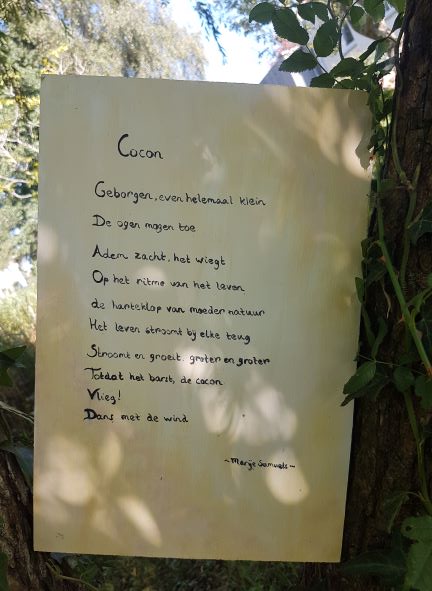 Cocon
Geborgen, even helemaal klein
De ogen mogen toe
Adem zacht, het wiegt
Op het ritme van het leven
de harteklop van moeder natuur
Het leven stroomt bij elke teug
Stroomt en groeit, groter en groter
Totdat het barst, de cocon
Vlieg!
Dans met de wind
~Marije Samuels~